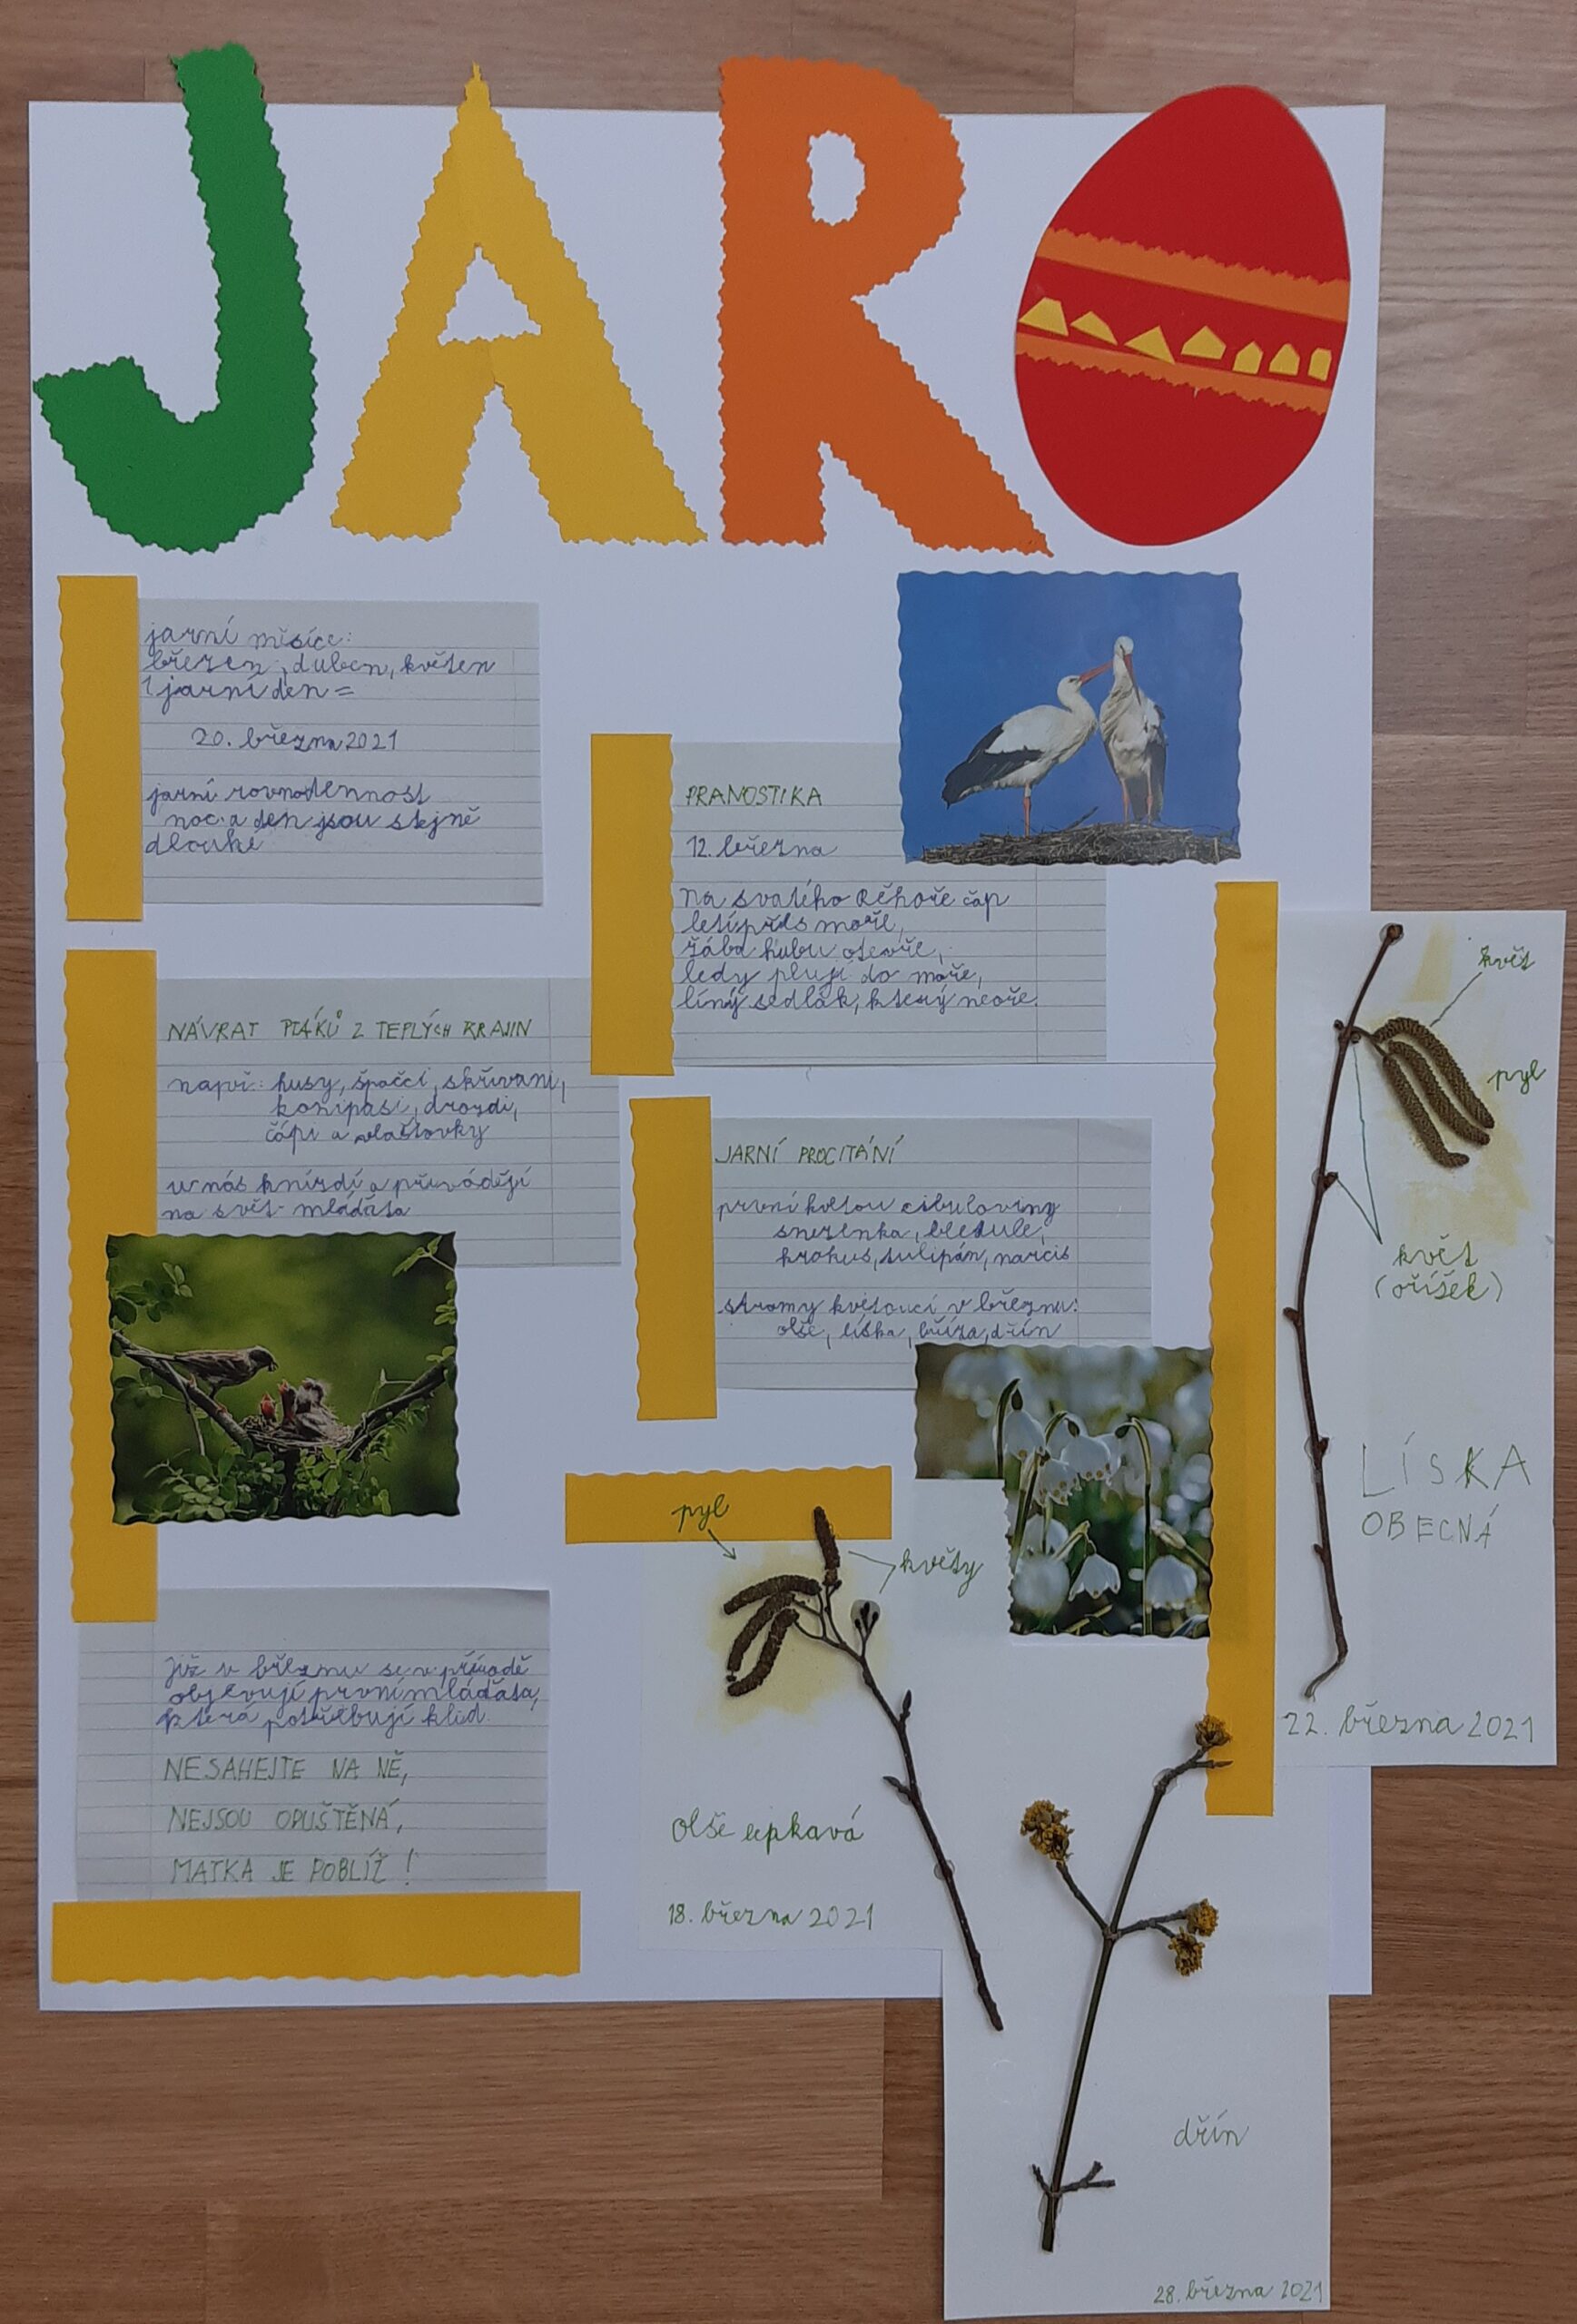 JARO
jarní měsíce:
březen, duben, květen
1 jarní den =
20. března 2021
jarní rovnodennost
noc a den jsou stejně
dlouhé
PRANOSTIKA
12. března
Na svatého Řehoře čáp
letí přes moře,
žába hubu otevře,
ledy plují do moře,
líný sedlák, který neoře.
NÁVRAT PTÁKŮ Z TEPLÝCH KRAJIN
např.: husy, špačci, skřivani,
konipasi, drozdi,
čápi a vlaštovky
u nás hnízdí a přivádějí
na svět mláďata
JARNÍ PROCITÁNÍ
první kvetou cibuloviny
sněženka, bledule,
krokus, tulipán, narcis
stromy kvetoucí v březnu:
olše, líska, bříza, dřín
Již v březnu se v přírodě
objevují první mláďata,
která potřebují klid.
NESAHEJTE NA NĚ,
NEJSOU OPUŠTĚNÁ,
MATKA JE POBLÍŽ!
pyl
květy
olše lepkavá
18. března 2021
květ
pyl
květ
(oříšek)
LÍSKA
OBECNÁ
22. března 2021
dřín
28. března 2021